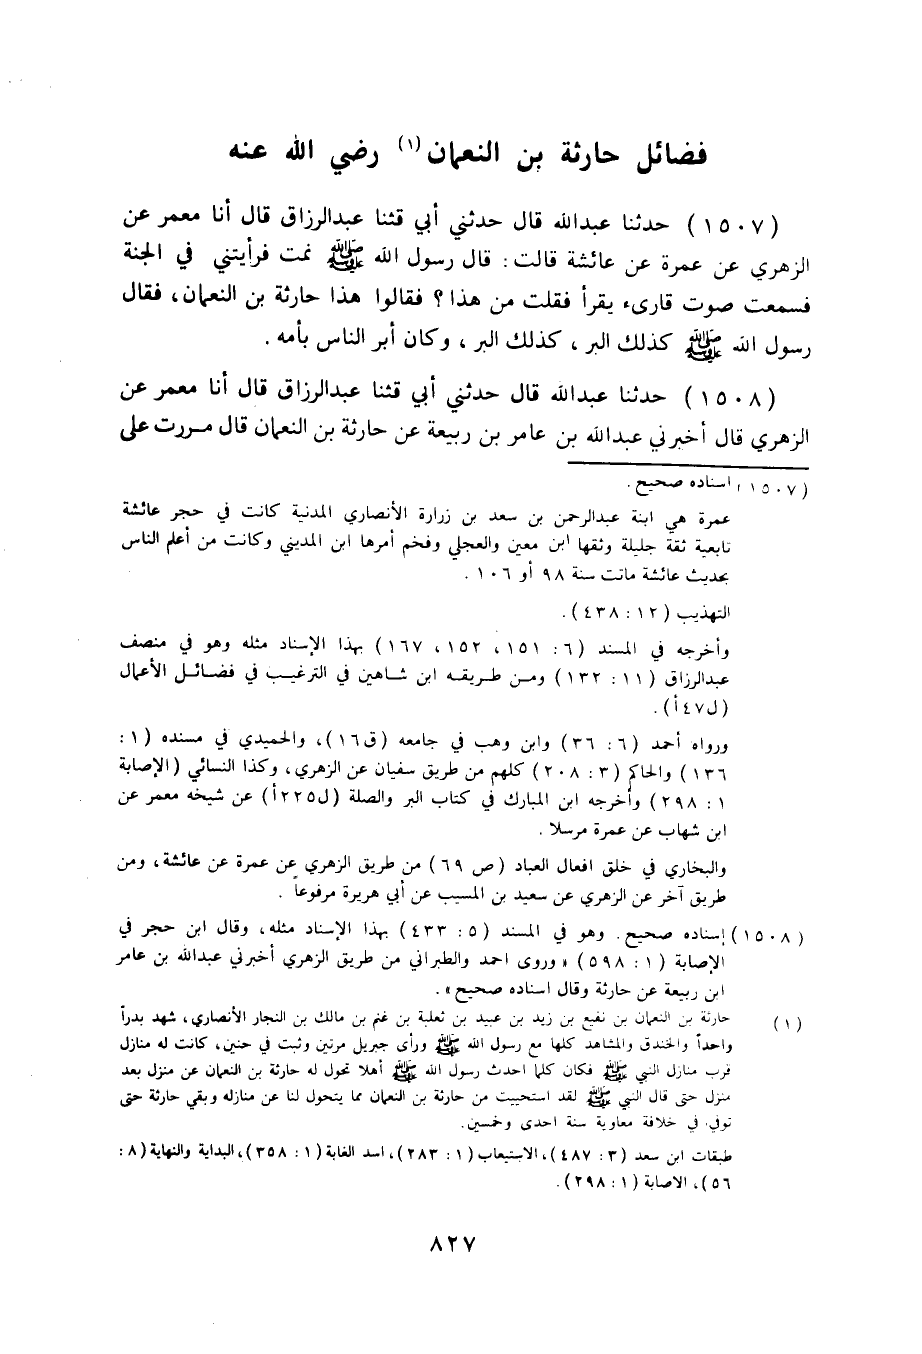 فضائل حارثة بن النعمان (١) رضي الله عنه
(١٥٠٧) حدثنا عبدالله قال حدثني أبي قثنا عبدالرزاق قال أنا معمر عن
الزهري عن عمرة عن عائشة قالت: قال رسول الله ﷺ نمت فرأيتني في الجنة
فسمعت صوت قارىء يقرأ فقلت من هذا؟ فقالوا هذا حارثة بن النعمان، فقال
رسول الله ﷺ كذلك البر، كذلك البر، وكان أبر الناس بأمه.
(١٥٠٨) حدثنا عبدالله قال حدثني أبي قثنا عبدالرزاق قال أنا معمر عن
الزهري قال أخبرني عبدالله بن عامر بن ربيعة عن حارثة بن النعمان قال مررت على
(١٥٠٧) اسناده صحيح.
عمرة هي ابنة عبدالرحمن بن سعد بن زرارة الأنصاري المدنية كانت في حجر عائشة
تابعية ثقة جليلة وثقها ابن معين والعجلي وفخم أمرها ابن المديني وكانت من أعلم الناس
بحديث عائشة ماتت سنة ٩٨ أو ١٠٦.
التهذيب (١٢: ٤٣٨).
وأخرجه في المسند (٦: ١٥١، ١٥٢، ١٦٧) بهذا الإسناد مثله وهو في منصف
عبدالرزاق (١١: ١٣٢) ومن طريقه ابن شاهين في الترغيب في فضائل الأعمال
(ل٤٧أ).
ورواه أحمد (٦: ٣٦) وابن وهب في جامعه (ق١٦)، والحميدي في مسنده (١:
١٣٦) والحاكم (٣: ٢٠٨) كلهم من طريق سفيان عن الزهري، وكذا النسائي (الإصابة
١: ٢٩٨) وأخرجه ابن المبارك في كتاب البر والصلة (ل٢٢٥أ) عن شيخه معمر عن
ابن شهاب عن عمرة مرسلا.
والبخاري في خلق افعال العباد (ص ٦٩) من طريق الزهري عن عمرة عن عائشة، ومن
طريق آخر عن الزهري عن سعيد بن المسيب عن أبي هريرة مرفوعاً.
(١٥٠٨) إسناده صحيح. وهو في المسند (٥: ٤٣٣) بهذا الإسناد مثله، وقال ابن حجر في
الإصابة (١: ٥٩٨) «وروى احمد والطبراني من طريق الزهري أخبرني عبدالله بن عامر
ابن ربيعة عن حارثة وقال اسناده صحيح».
(١) حارثة بن النعمان بن نفيع بن زيد بن عبيد بن ثعلبة بن غنم بن مالك بن النجار الأنصاري، شهد بدراً
واحداً والخندق والمشاهد كلها مع رسول الله ﷺ ورأى جبريل مرتين وثبت في حنين، كانت له منازل
قرب منازل النبي ﷺ فكان كلما احدث رسول الله ﷺ أهلا تحول له حارثة بن النعمان عن منزل بعد
منزل حتى قال النبي ﷺ لقد استحييت من حارثة بن النعمان مما يتحول لنا عن منازله وبقي حارثة حتى
توفي في خلافة معاوية سنة احدى وخمسين.
طبقات ابن سعد (٣: ٤٨٧)، الاستيعاب (١: ٢٨٣)، اسد الغابة (١: ٣٥٨)، البداية والنهاية (٨:
٥٦)، الاصابة (١: ٢٩٨).
٨٢٧